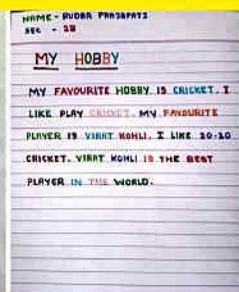 NAME - RUDRA PRAJAPATI
SEC - 2B
MY HOBBY
MY FAVOURITE HOBBY IS CRICKET. I
LIKE PLAY CRICKET. MY FAVOURITE
PLAYER IS VIRAT KOHLI. I LIKE 20-20
CRICKET. VIRAT KOHLI IS THE BEST
PLAYER IN THE WORLD.